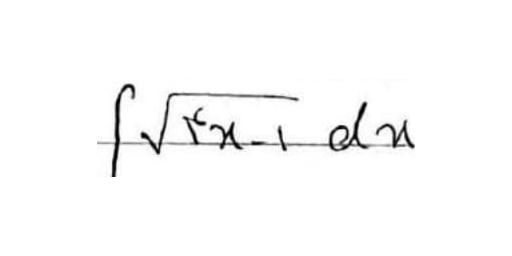 ∫√(۴x-1) dx